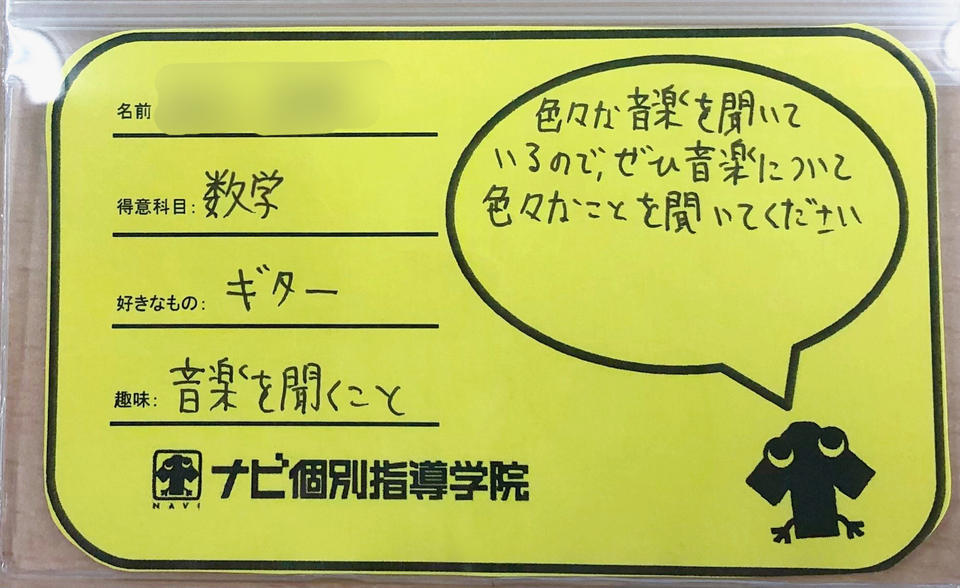 名前
得意科目: 数学
好きなもの: ギター
趣味: 音楽を聞くこと
色々な音楽を聞いて
いるので、ぜひ音楽について
色々なことを聞いてください
NAVI
ナビ個別指導学院